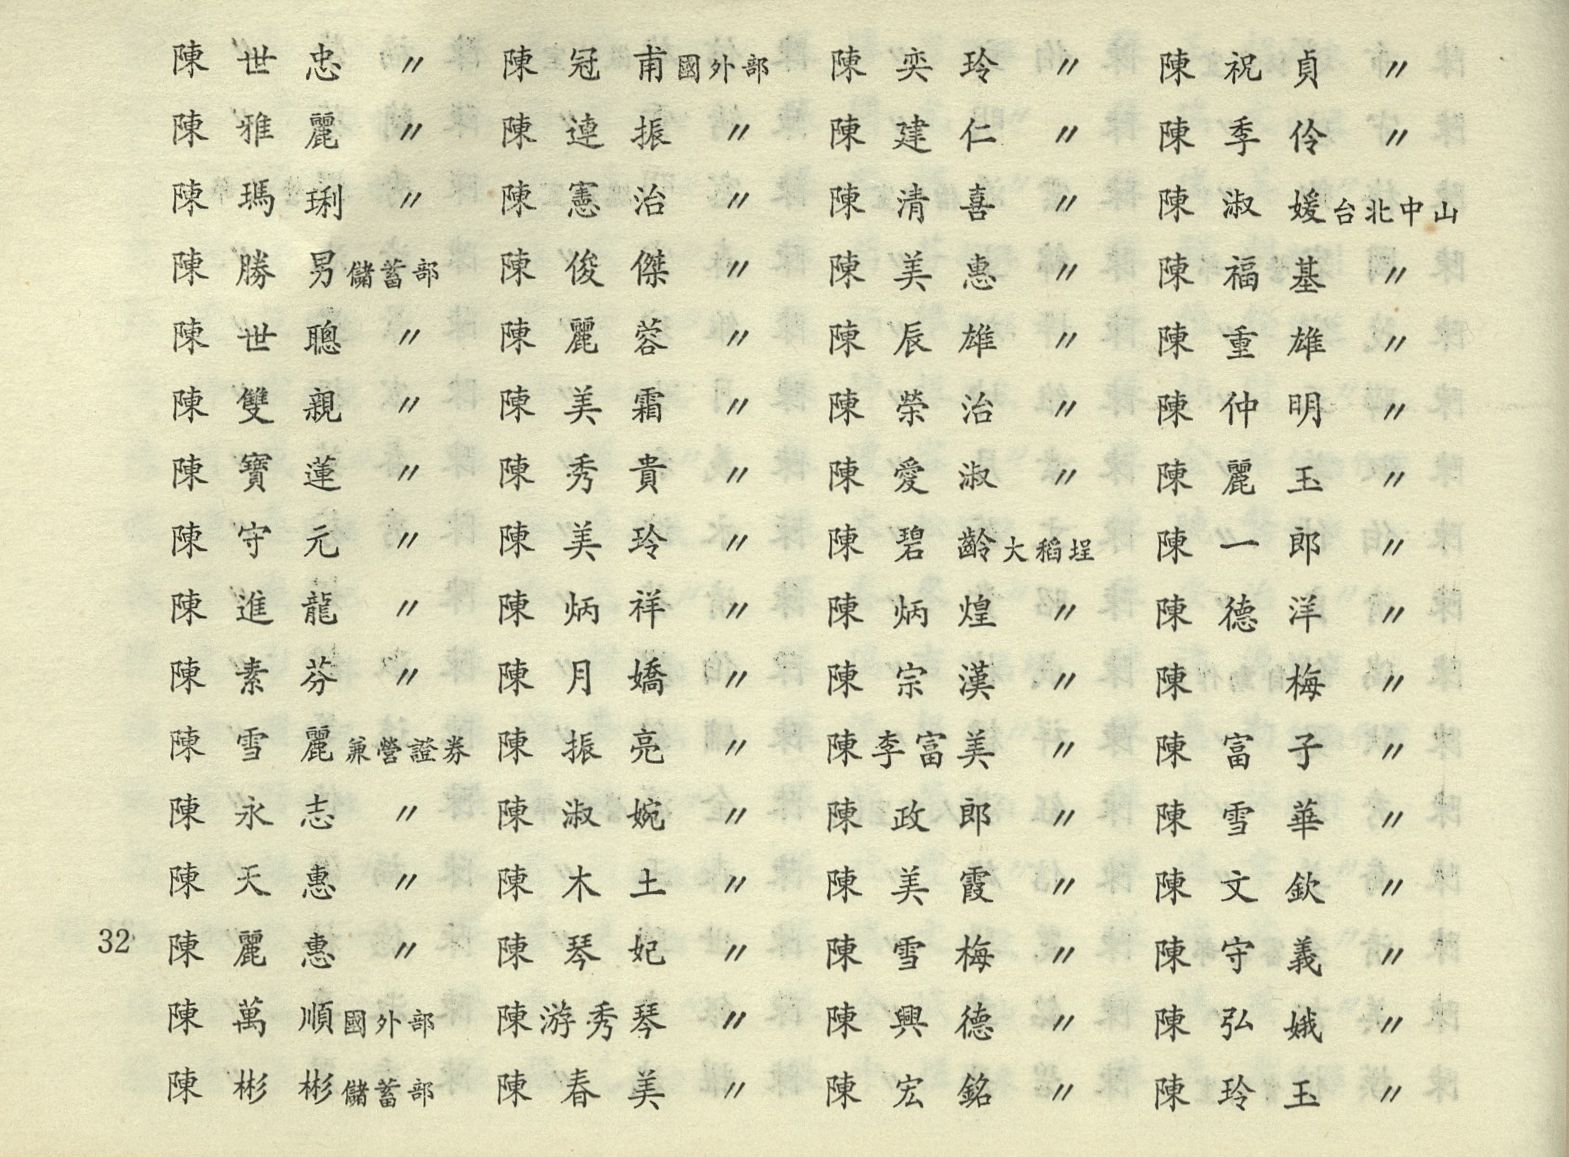 陳世忠 〃
陳雅麗 〃
陳瑪琍 〃
陳勝男 儲蓄部
陳世聰 〃
陳雙親 〃
陳寶蓮 〃
陳守元 〃
陳進龍 〃
陳素芬 〃
陳雪麗 兼營證券
陳永志 〃
陳天惠 〃
陳麗惠 〃
陳萬順 國外部
陳彬彬 儲蓄部
陳冠甫 國外部
陳連振 〃
陳憲治 〃
陳俊傑 〃
陳麗蓉 〃
陳美霜 〃
陳秀貴 〃
陳美玲 〃
陳炳祥 〃
陳月嬌 〃
陳振亮 〃
陳淑婉 〃
陳木土 〃
陳琴妃 〃
陳游秀琴 〃
陳春美 〃
陳奕玲 〃
陳建仁 〃
陳清喜 〃
陳美惠 〃
陳辰雄 〃
陳榮治 〃
陳愛淑 〃
陳碧齡 大稻埕
陳炳煌 〃
陳宗漢 〃
陳李富美 〃
陳政郎 〃
陳美霞 〃
陳雪梅 〃
陳興德 〃
陳宏銘 〃
陳祝貞 〃
陳季伶 〃
陳淑媛 台北中山
陳福基 〃
陳重雄 〃
陳仲明 〃
陳麗玉 〃
陳一郎 〃
陳德洋 〃
陳梅 〃
陳富子 〃
陳雪華 〃
陳文欽 〃
陳守義 〃
陳弘娥 〃
陳玲玉 〃
32